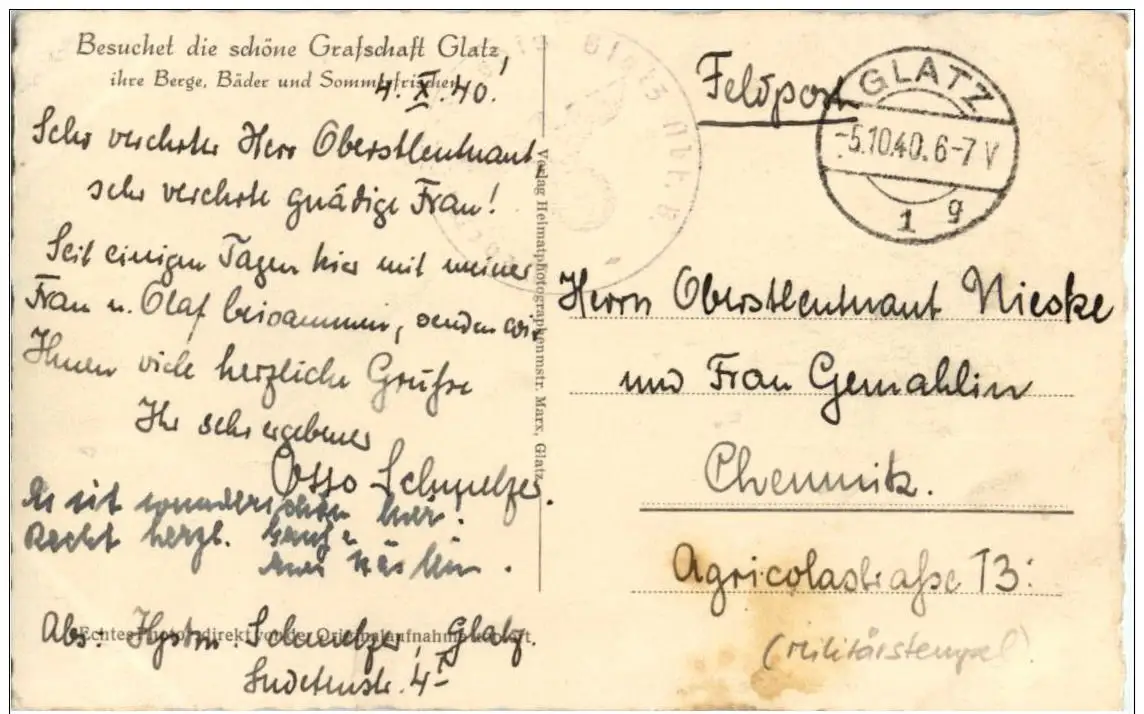 Besuchet die schöne Grafschaft Glatz,
ihre Berge, Bäder und Sommerfrischen
4. X. 40.
Sehr verehrter Herr Oberstleutnant,
sehr verehrte gnädige Frau!
Seit einigen Tagen hier mit meiner
Frau u. Olaf beisammen, senden wir
Ihnen viele herzliche Grüße
Ihr sehr ergebener
Otto Schmelzer.
Es ist wunderschön hier!
Recht herzl. Grüße
Abs: Hptm. Schmelzer, Glatz
Sudetenstr. 4 I
Echtes Photo, direkt von der Originalaufnahme kopiert.
Verlag Heimatphotographenmstr. Marx, Glatz
Feldpost
GLATZ
-5.10.40.6-7 V
1 g
Herrn Oberstleutnant Nieske
und Frau Gemahlin
Chemnitz.
Agricolastraße 13:
(Militärstempel)